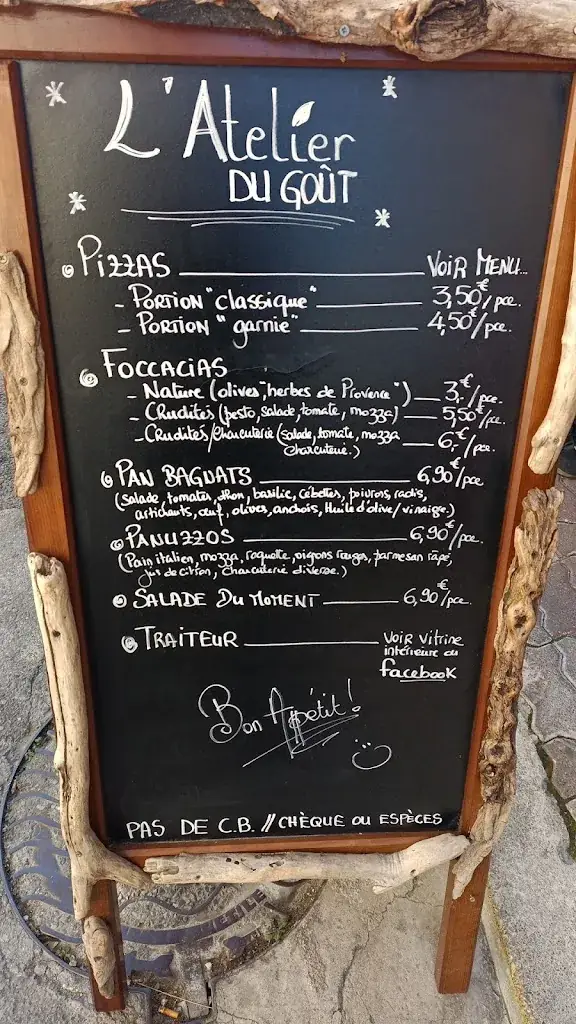 L'Atelier
DU GOÛT
PIZZAS VOIR MENU...
- PORTION "classique" 3,50€/pce.
- PORTION "garnie" 4,50€/pce.
FOCCACIAS
- Nature (olives, herbes de Provence") 3,-€/pce.
- Crudités (pesto, salade, tomate, mozza) 5,50€/pce.
- Crudités/Charcuterie (salade, tomate, mozza 6,-€/pce.
Charcuterie.)
PAN BAGNATS 6,90€/pce
(salade, tomates, thon, basilic, cébettes, poivrons, radis,
artichauts, œuf, olives, anchois, Huile d'olive/vinaigre.)
PANUZZOS 6,90€/pce.
(Pain italien, mozza, roquette, oignons rouges, parmesan râpé,
jus de citron, Charcuterie diverse.)
SALADE DU MOMENT 6,90€/pce.
TRAITEUR VOIR VITRINE
intérieure ou
facebook
Bon Appétit!
PAS DE C.B. // CHÈQUE OU ESPÈCES